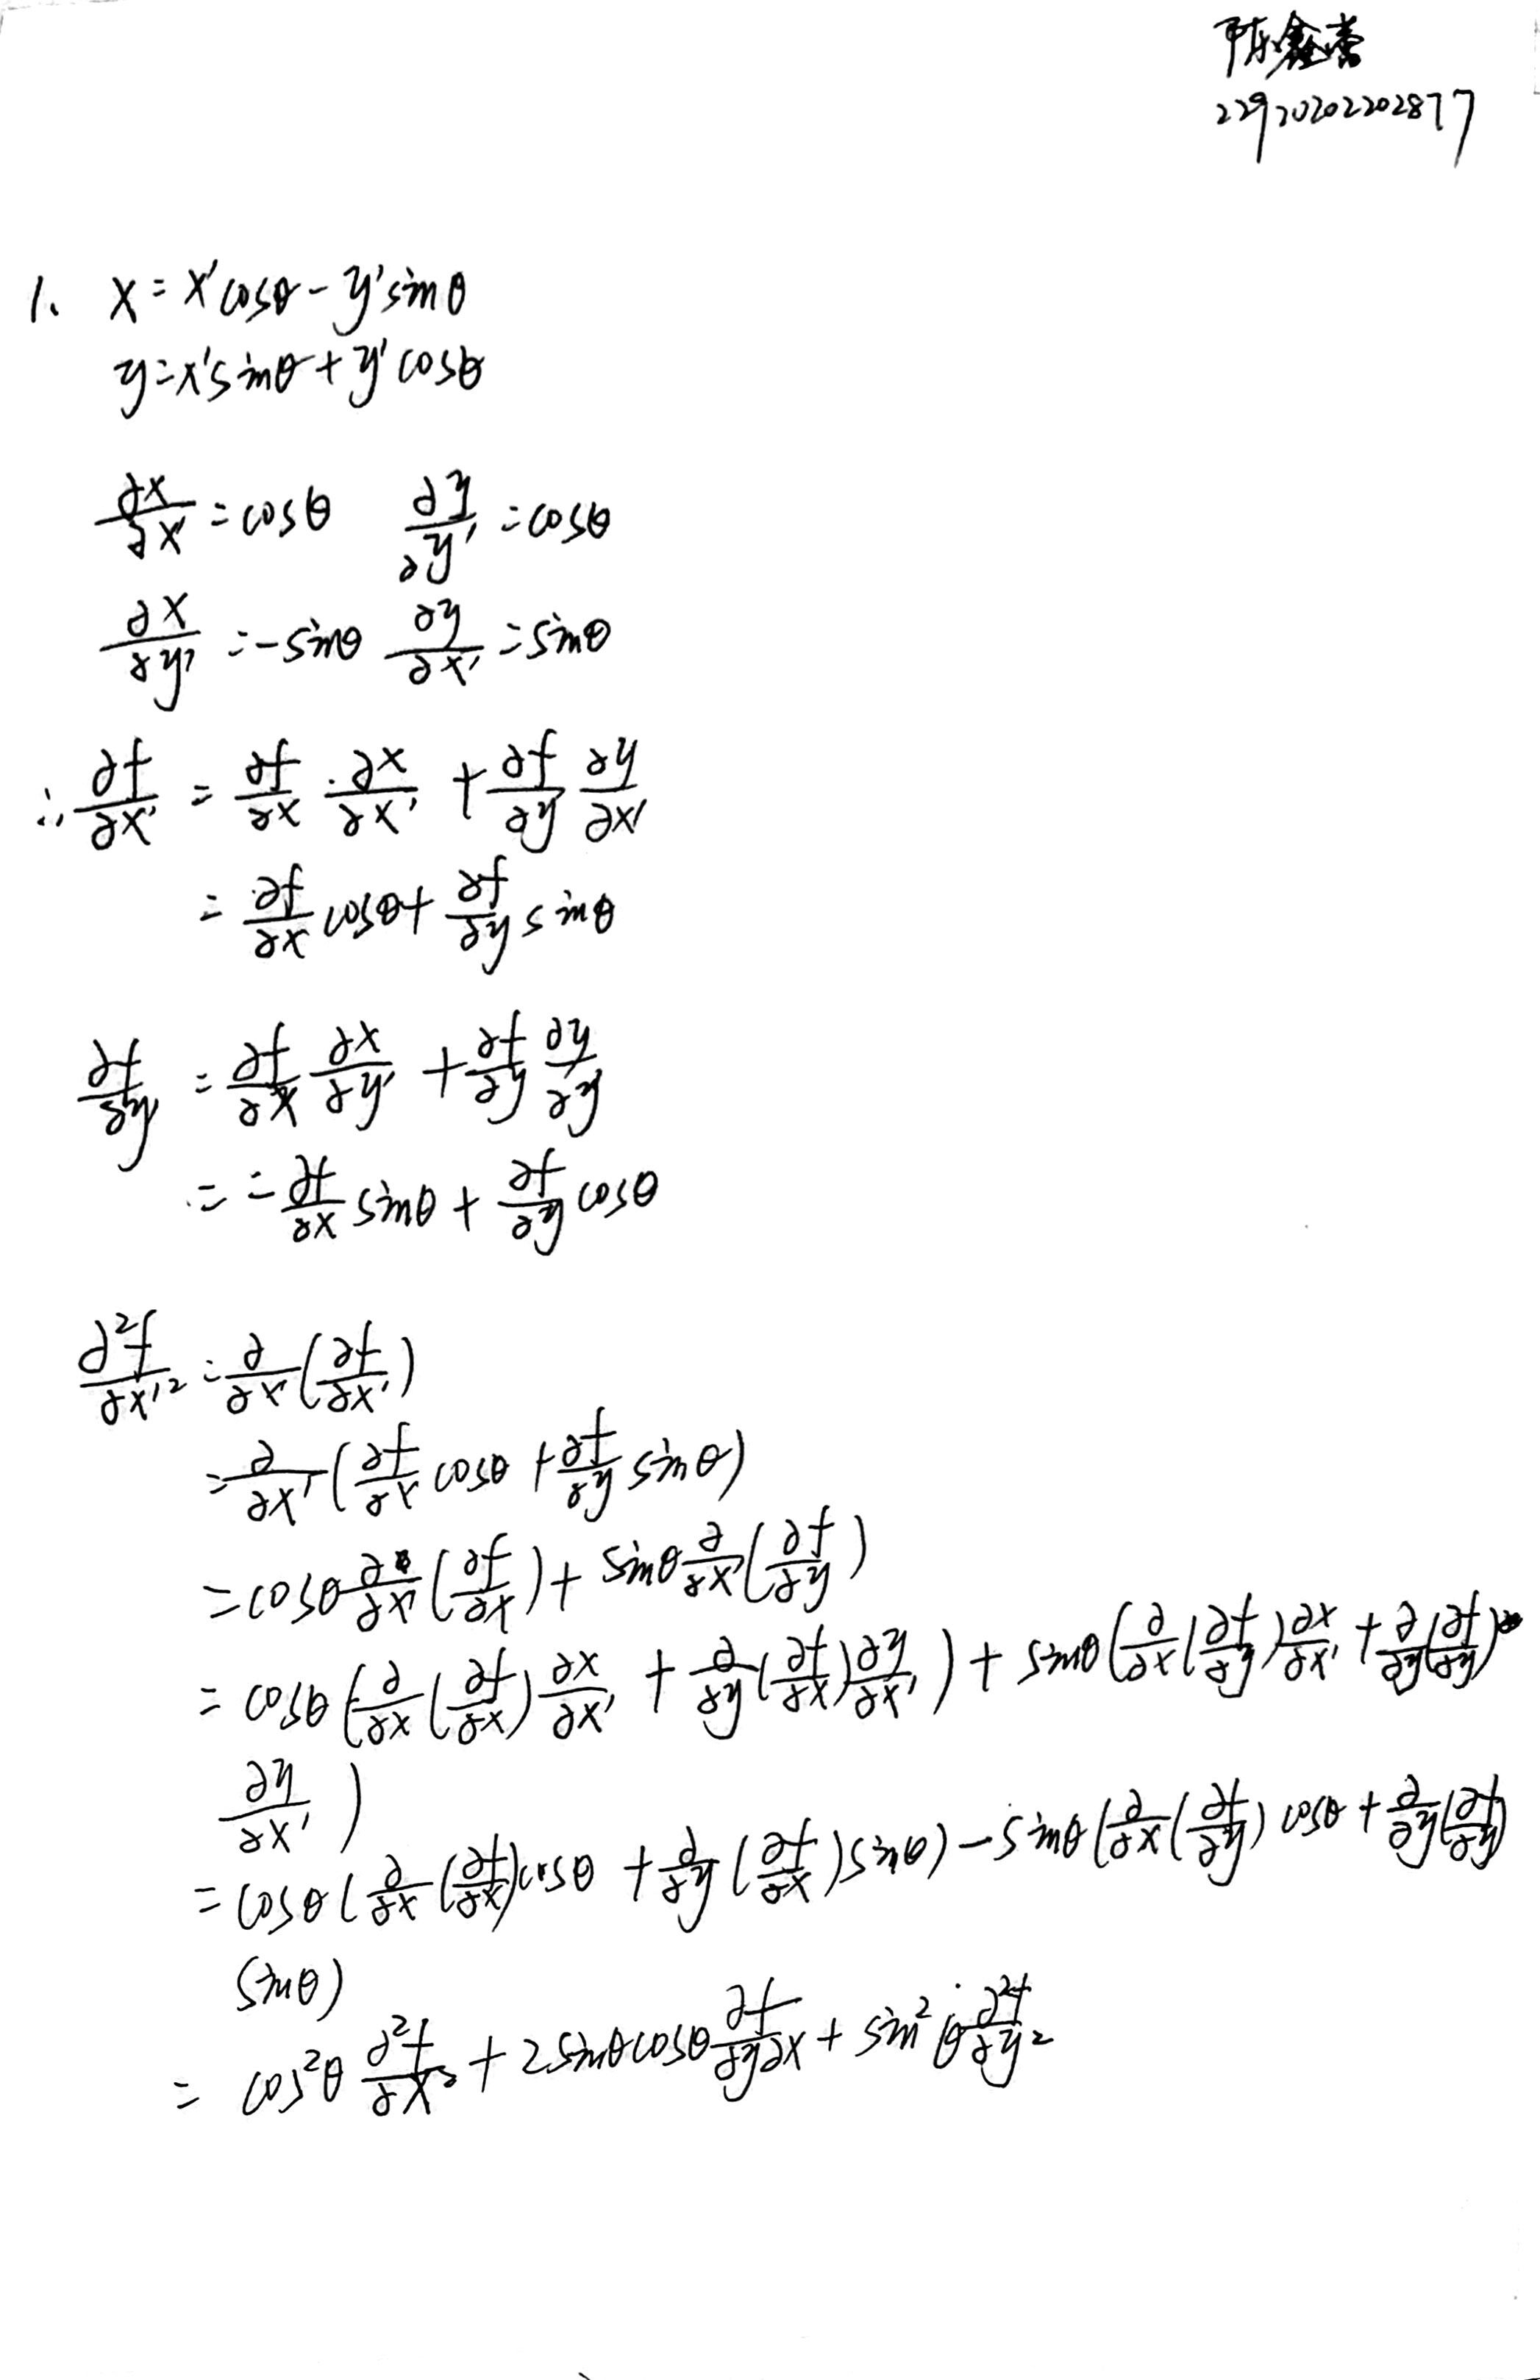 陈鑫
22920202202877
1、 x = x'cosθ - y'sinθ
y = x'sinθ + y'cosθ
∂x/∂x' = cosθ ∂y/∂y' = cosθ
∂x/∂y' = -sinθ ∂y/∂x' = sinθ
∴ ∂f/∂x' = ∂f/∂x · ∂x/∂x' + ∂f/∂y ∂y/∂x'
= ∂f/∂x cosθ + ∂f/∂y sinθ
∂f/∂y' = ∂f/∂x ∂x/∂y' + ∂f/∂y ∂y/∂y'
= -∂f/∂x sinθ + ∂f/∂y cosθ
∂²f/∂x'² = ∂/∂x' (∂f/∂x')
= ∂/∂x' (∂f/∂x cosθ + ∂f/∂y sinθ)
= cosθ ∂/∂x' (∂f/∂x) + sinθ ∂/∂x' (∂f/∂y)
= cosθ (∂/∂x (∂f/∂x) ∂x/∂x' + ∂/∂y (∂f/∂x) ∂y/∂x') + sinθ (∂/∂x (∂f/∂y) ∂x/∂x' + ∂/∂y (∂f/∂y)
∂y/∂x')
= cosθ (∂/∂x (∂f/∂x) cosθ + ∂/∂y (∂f/∂x) sinθ) - sinθ (∂/∂x (∂f/∂y) cosθ + ∂/∂y (∂f/∂y)
sinθ)
= cos²θ ∂²f/∂x² + 2sinθcosθ ∂f/∂y∂x + sin²θ ∂²f/∂y²